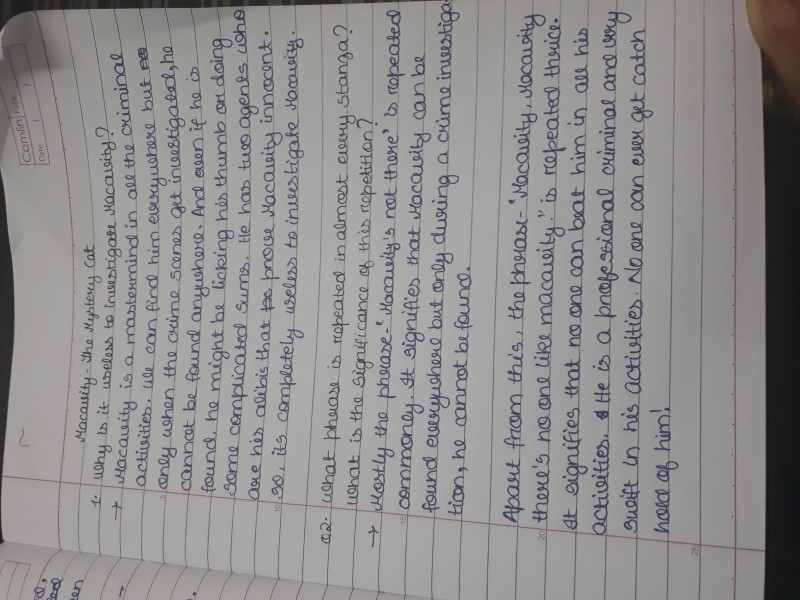 Camlin Page
Date / /
Macavity - The Mystery Cat
1. Why is it useless to investigate Macavity?
→ Macavity is a mastermind in all the criminal
activities. We can find him everywhere but
only when the crime scenes get investigated, he
cannot be found anywhere. And even if he is
found, he might be licking his thumb or doing
some complicated sums. He has two agents who
are his alibis that prove Macavity innocent.
So, its completely useless to investigate Macavity.
Q2. What phrase is repeated in almost every stanza?
What is the significance of this repetition?
→ Mostly the phrase - "Macavity's not there" is repeated
commonly. It signifies that Macavity can be
found everywhere but only during a crime investiga
tion, he cannot be found.
Apart from this, the phrase - "Macavity, Macavity
there's no one like macavity." is repeated thrice.
It signifies that no one can beat him in all his
activities. He is a professional criminal and very
swift in his activities. No one can ever get catch
hold of him!
5
10
15
20
25